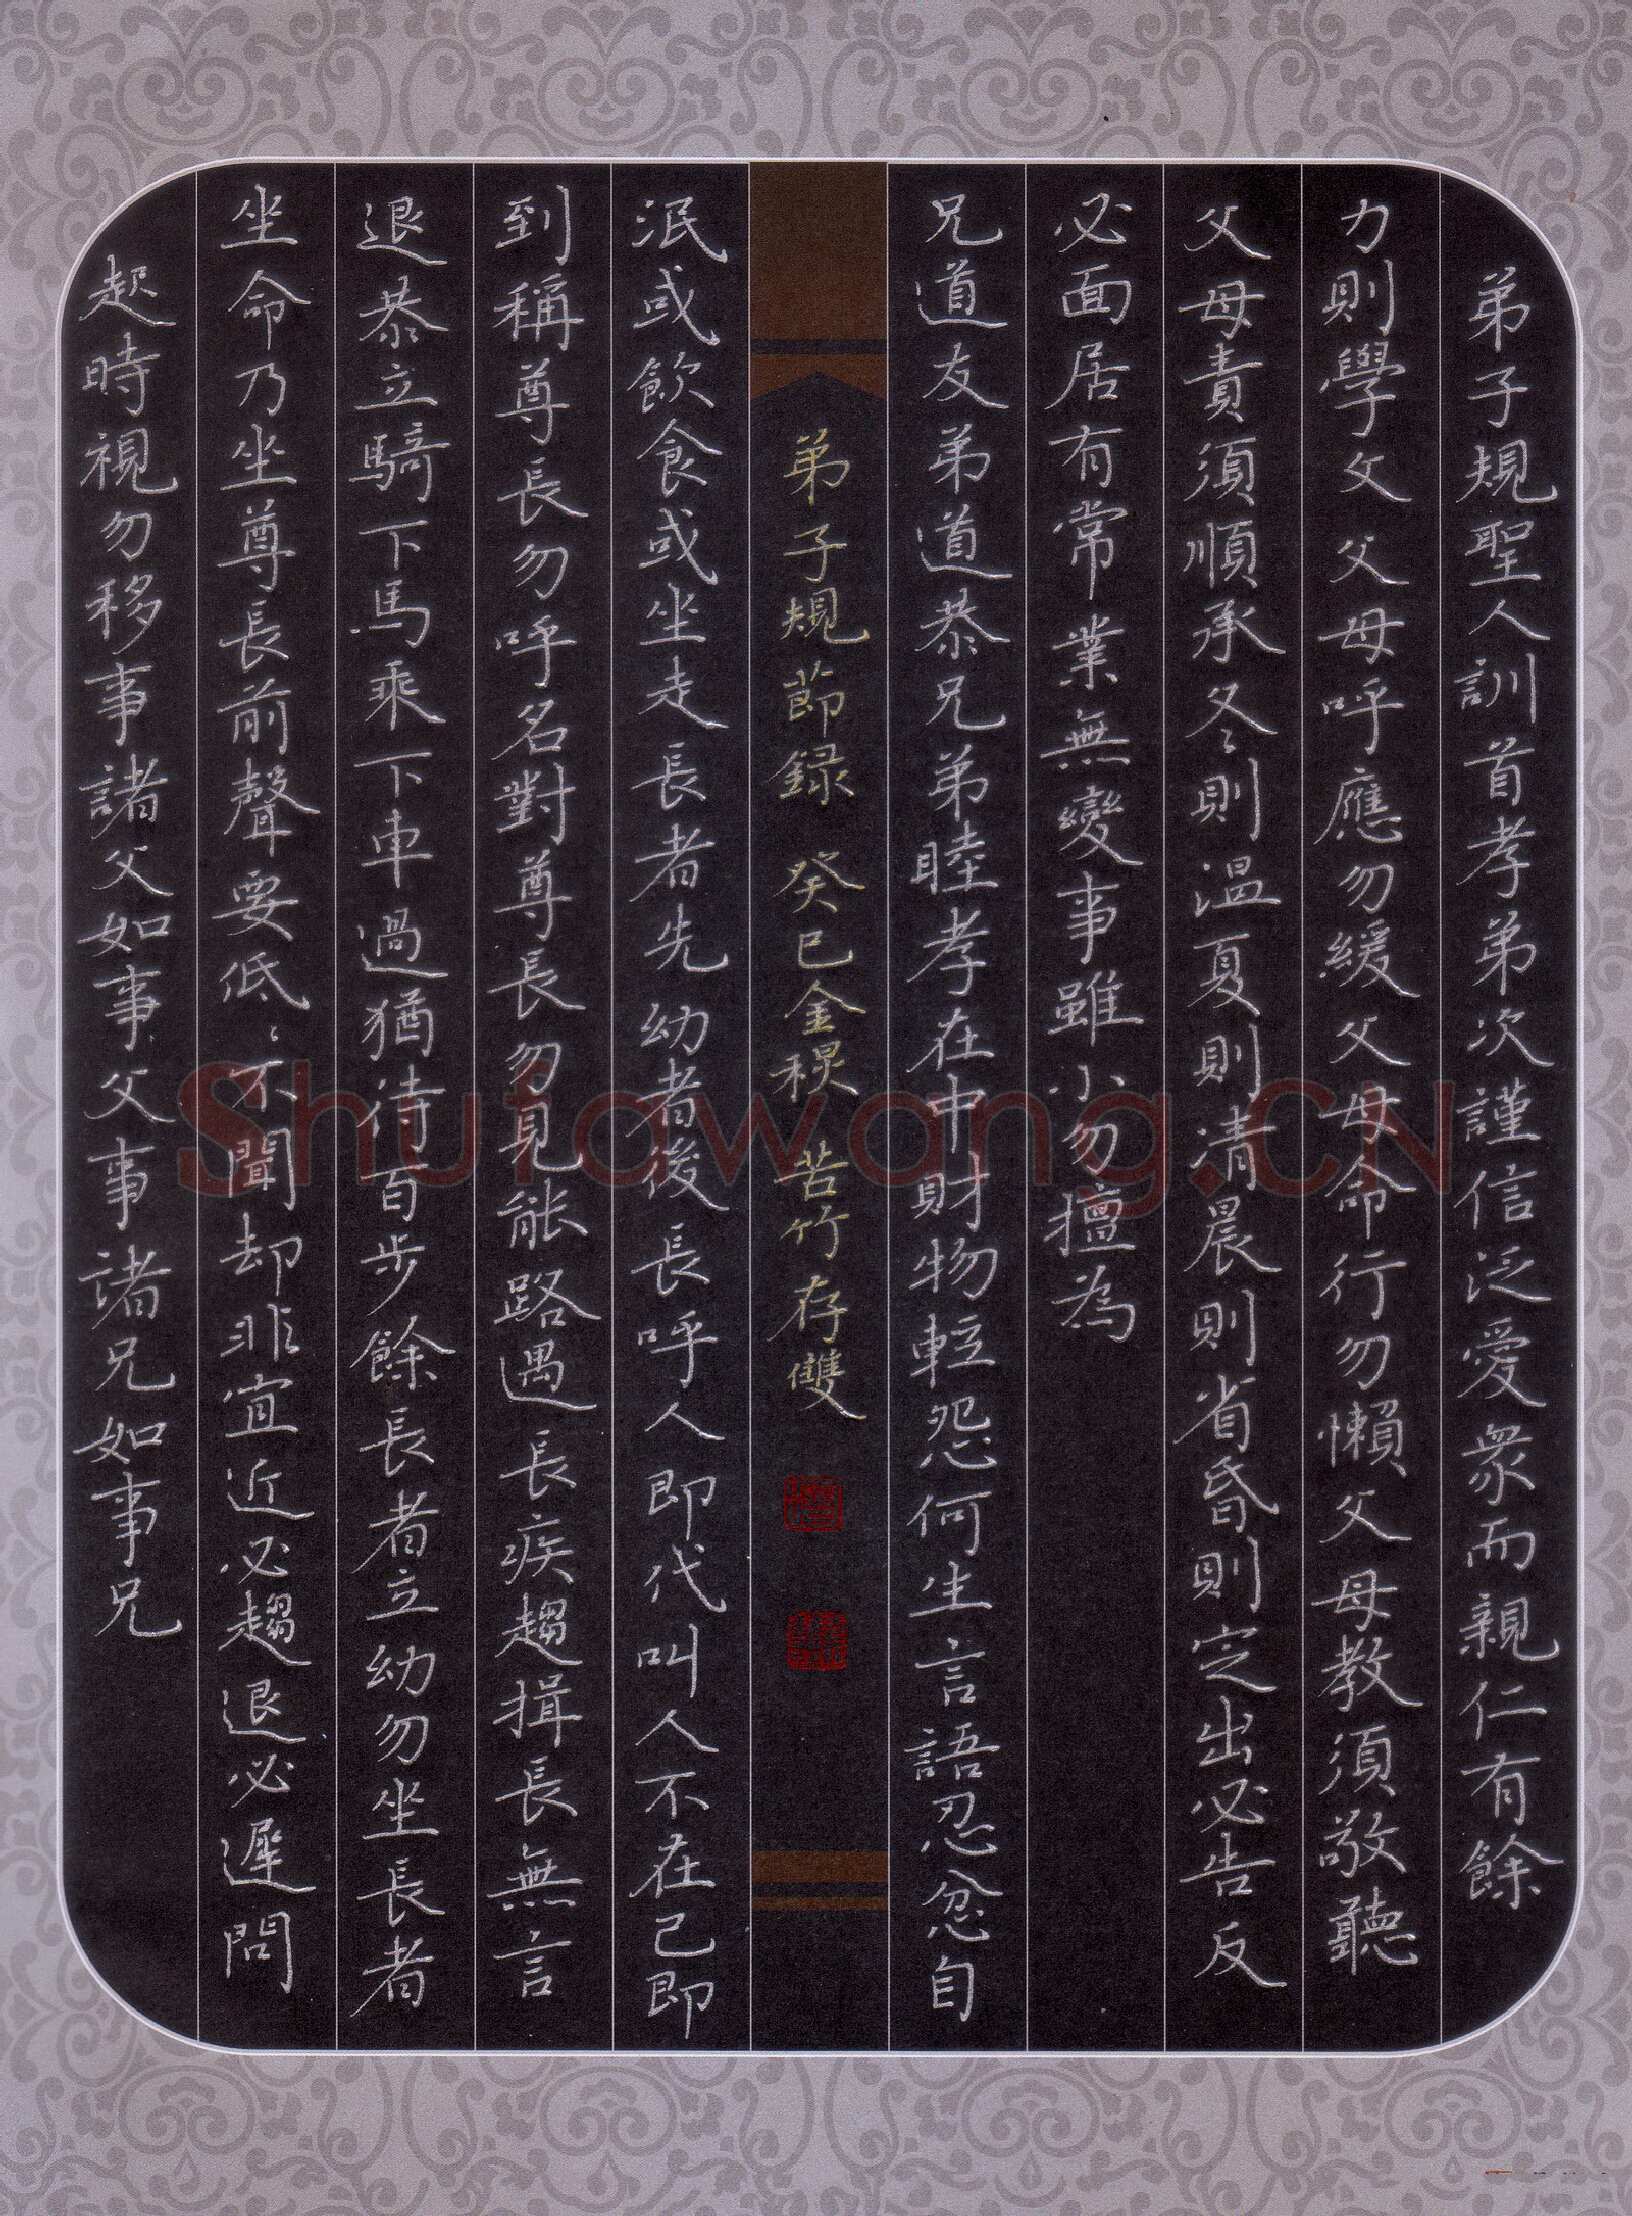 弟子規聖人訓首孝弟次謹信泛愛衆而親仁有餘
力則學文父母呼應勿緩父母命行勿懶父母教須敬聽
父母責須順承冬則溫夏則清晨則省昏則定出必告反
必面居有常業無變事雖小勿擅為
兄道友弟道恭兄弟睦孝在中財物輕怨何生言語忍忿自
弟子規節録 癸巳金 苦竹存雙
泯或飲食或坐走長者先幼者後長呼人即代叫人不在己即
到稱尊長勿呼名對尊長勿見能路遇長疾趨揖長無言
退恭立騎下馬乘下車過猶待百步餘長者立幼勿坐長者
坐命乃坐尊長前聲要低〻不聞却非宜近必趨退必遲問
起時視勿移事諸父如事父事諸兄如事兄
Shufawang.CN